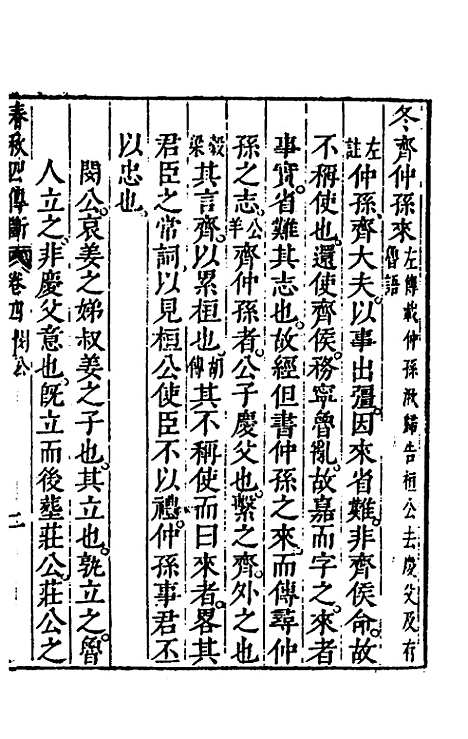 冬齊仲孫來左傳載仲孫湫歸告桓公去慶父及有魯語
左註仲孫齊大夫以事出彊因來省難非齊侯命故
不稱使也還使齊侯務寧魯亂故嘉而字之來者
事實省難其志也故經但書仲孫之來而傳尋仲
孫之志公羊齊仲孫者公子慶父也繫之齊外之也
穀梁其言齊以累桓也胡傳其不稱使而曰來者畧其
君臣之常詞以見桓公使臣不以禮仲孫事君不
以忠也
閔公哀姜之娣叔姜之子也其立也孰立之魯
人立之非慶父意也旣立而後塟莊公莊公之
春秋四傳斷 卷四 閔公 二